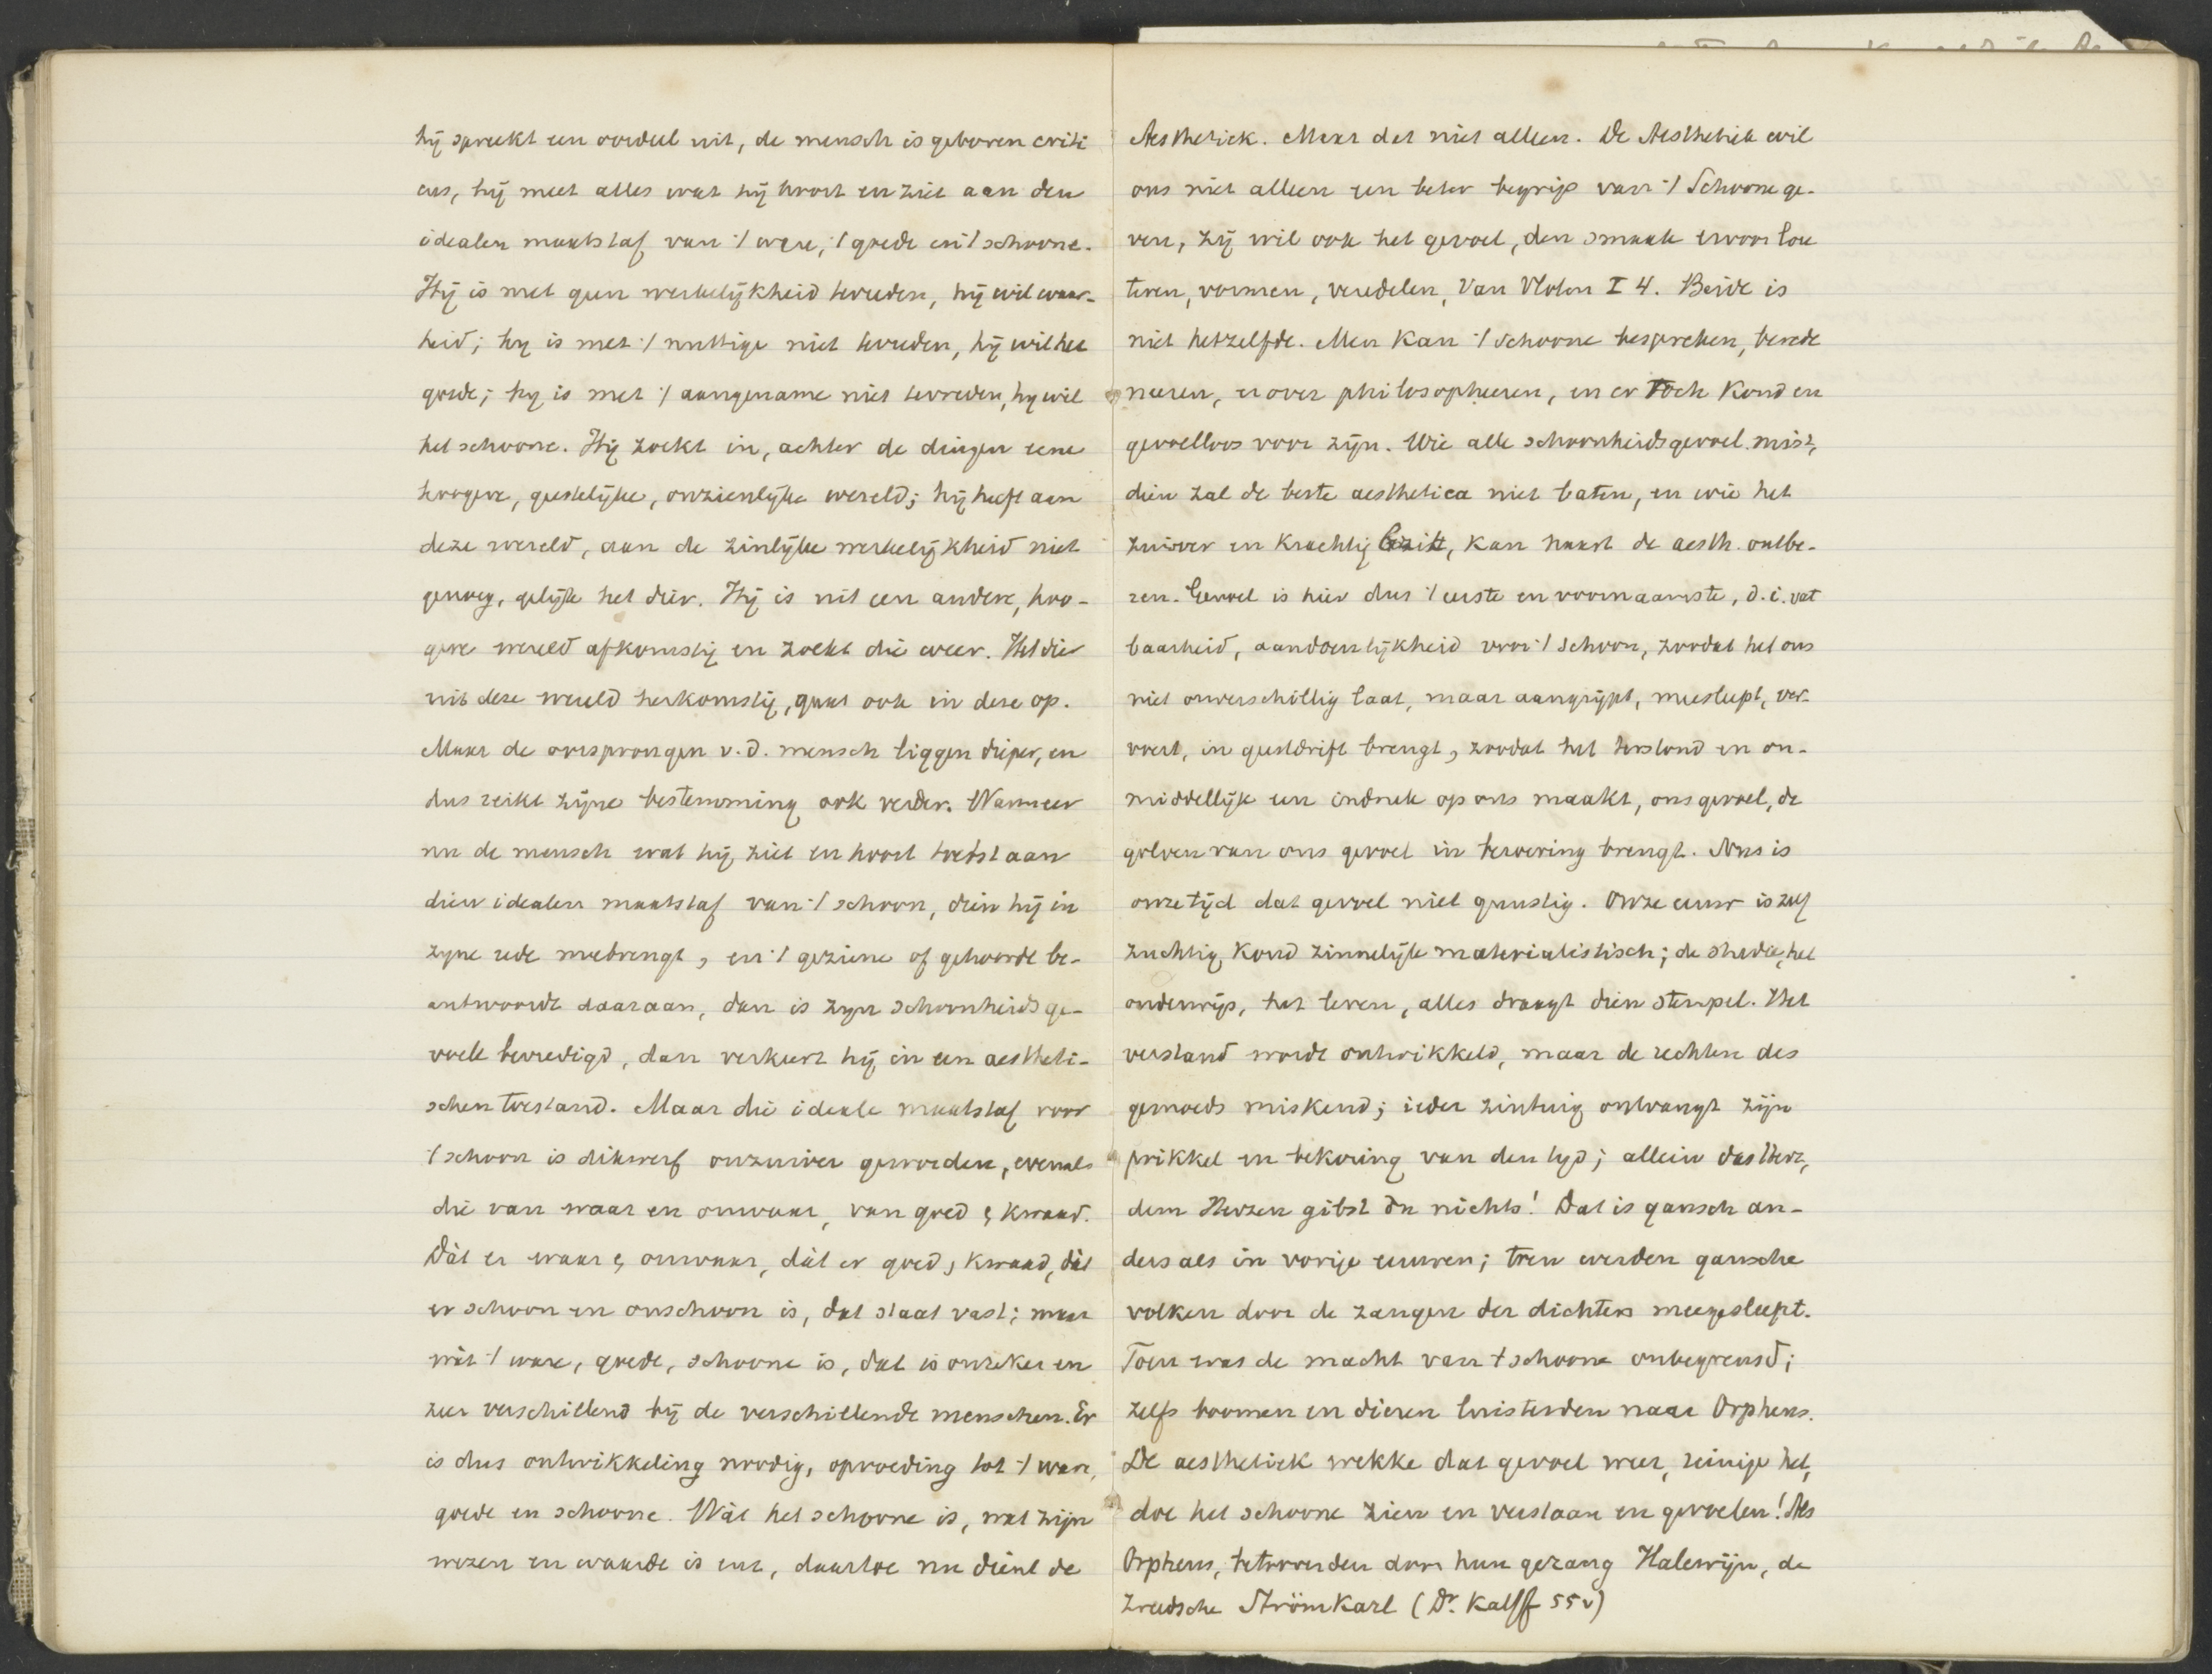 hij spreekt een oordeel uit, de mensch is geboren criti
cus, hij meet alles wat hij hoort en ziet aan den
idealen maatstaf van 't ware, 't goede en 't schoone.
Hij is met geen werkelijkheid tevreden, hij wil waar-
heid; hij is met 't nuttige niet tevreden, hij wil het
goede; hij is met 't aangename niet tevreden, hij wil
het schoone. Hij zoekt in, achter de dingen eene
hoogere, geestelijke, onzienlijke wereld; hij heeft aan
deze wereld, aan de zinlijke werkelijkheid niet
genoeg, gelijk het dier. Hij is uit een andere, hoo-
gere wereld afkomstig en zoekt die weer. Het dier
uit deze wereld herkomstig, gaat ook in deze op.
Maar de oorsprongen v.d. mensch liggen dieper, en
dus reikt zijne bestemming ook verder. Wanneer
nu de mensch wat hij ziet en hoort toetst aan
dien idealen maatstaf van 't schoon, dien hij in
zijne rede meebrengt, en 't geziene of gehoorde be-
antwoordt daaraan, dan is zijn schoonheidsge-
voel bevredigd, dan verkeert hij in een aestheti-
schen toestand. Maar die ideale maatstaf voor
't schoon is dikwerf onzuiver geworden, evenals
die van waar en onwaar, van goed & kwaad.
Dàt er waar & onwaar, dàt er goed & kwaad, dàt
er schoon en onschoon is, dat staat vast; maar
wàt 't ware, goede, schoone is, dat is onzeker en
zeer verschillend bij de verschillende menschen. Er
is dus ontwikkeling noodig, opvoeding tot 't ware,
goede en schoone. Wàt het schoone is, wat zijn
wezen en waarde is enz, daartoe nu dient de
Aesthetiek. Maar dat niet alleen. De Aesthetiek wil
ons niet alleen een beter begrip van 't Schoone ge-
ven, zij wil ook het gevoel, den smaak ervoor lou
teren, vormen, veredelen, Van Vloten I 4. Beide is
niet hetzelfde. Men kan 't schoone bespreken, berede
neeren, erover philosopheeren, en er toch koud en
gevoelloos voor zijn. Wie alle schoonheidsgevoel mist,
dien zal de beste aesthetica niet baten, en wie het
zuiver en krachtig bezit, kan haast de aesth. ontbe-
ren. Gevoel is hier dus 't eerste en voornaamste, d.i. vat
baarheid, aandoenlijkheid voor 't schoon, zoodat het ons
niet onverschillig laat, maar aangrijpt, meesleept, ver-
voert, in geestdrift brengt, zoodat het terstond en on-
middellijk een indruk op ons maakt, ons gevoel, de
golven van ons gevoel in beroering brengt. Nu is
onze tijd dat gevoel niet gunstig. Onze eeuw is zelf
zuchtig koud zinnelijk materialistisch; de studie, het
onderwijs, het leven, alles draagt dien stempel. Het
verstand wordt ontwikkeld, maar de rechten des
gemoeds miskend; ieder zintuig ontvangt zijn
prikkel en bekoring van den tijd; allein das Herz,
dem Herzen gibst du nichts! Dat is gansch an-
ders als in vorige eeuwen; toen werden gansche
volken door de zangen der dichters meegesleept.
Toen was de macht van 't schoone onbegrensd;
zelfs boomen en dieren luisterden naar Orpheus.
De aesthetiek wekke dat gevoel weer, reinige het,
doe het schoone zien en verstaan en gevoelen! Als
Orpheus, betooverden door hun gezang Halewijn, de
zweedsche Strömkarl (Dr. Kalff 55v)